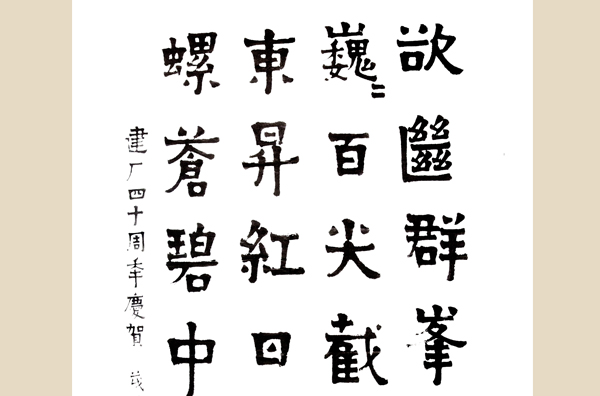 欲㡭群峯
巍〻百尖截
東昇紅日
螺蒼碧中
建厂四十周年慶賀